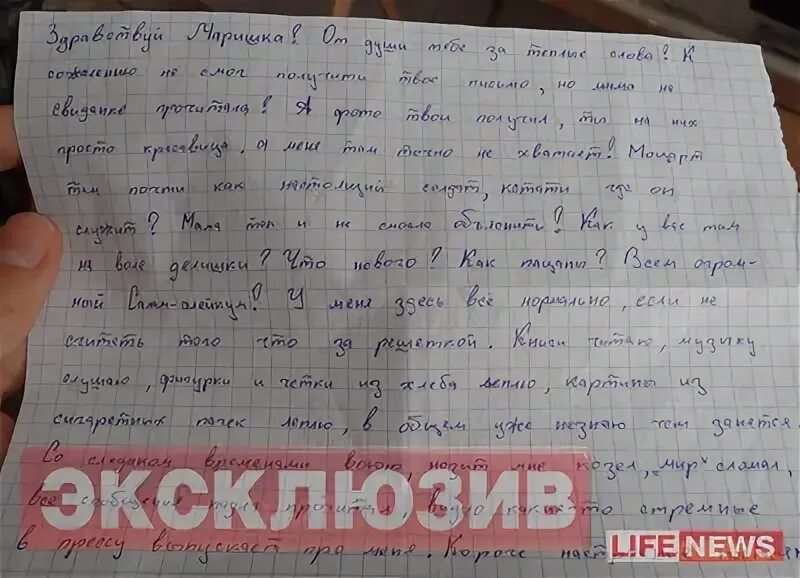 Здравствуй Маришка! От души тебе за теплые слова! К
сожелению не смог получити твое писмо, но мама на
свиданке прочитала! А фото твои получил, ты на них
просто красавица, а меня там точно не хватает! Моцарт
там почти как настоящий солдат, кстати где он
служит? Мама так и не смогла объяснити! Как у вас там
на воле делишки? Что нового? Как пацаны? Всем огром-
ный Салам-алейкум! У меня здесь всё нормально, если не
считать того что за решеткой. Книги читаю, музыку
слушаю, фигурки и четки из хлеба леплю, картины из
сигаретных пачек леплю, в общем уже незнаю чем занятся.
Со следаком временами воюю, мне козел, "мир" сломал,
все сообщения прочитал, какие-то стремные
в прессу выпускает про меня. Короче
ЭКСКЛЮЗИВ
LIFENEWS